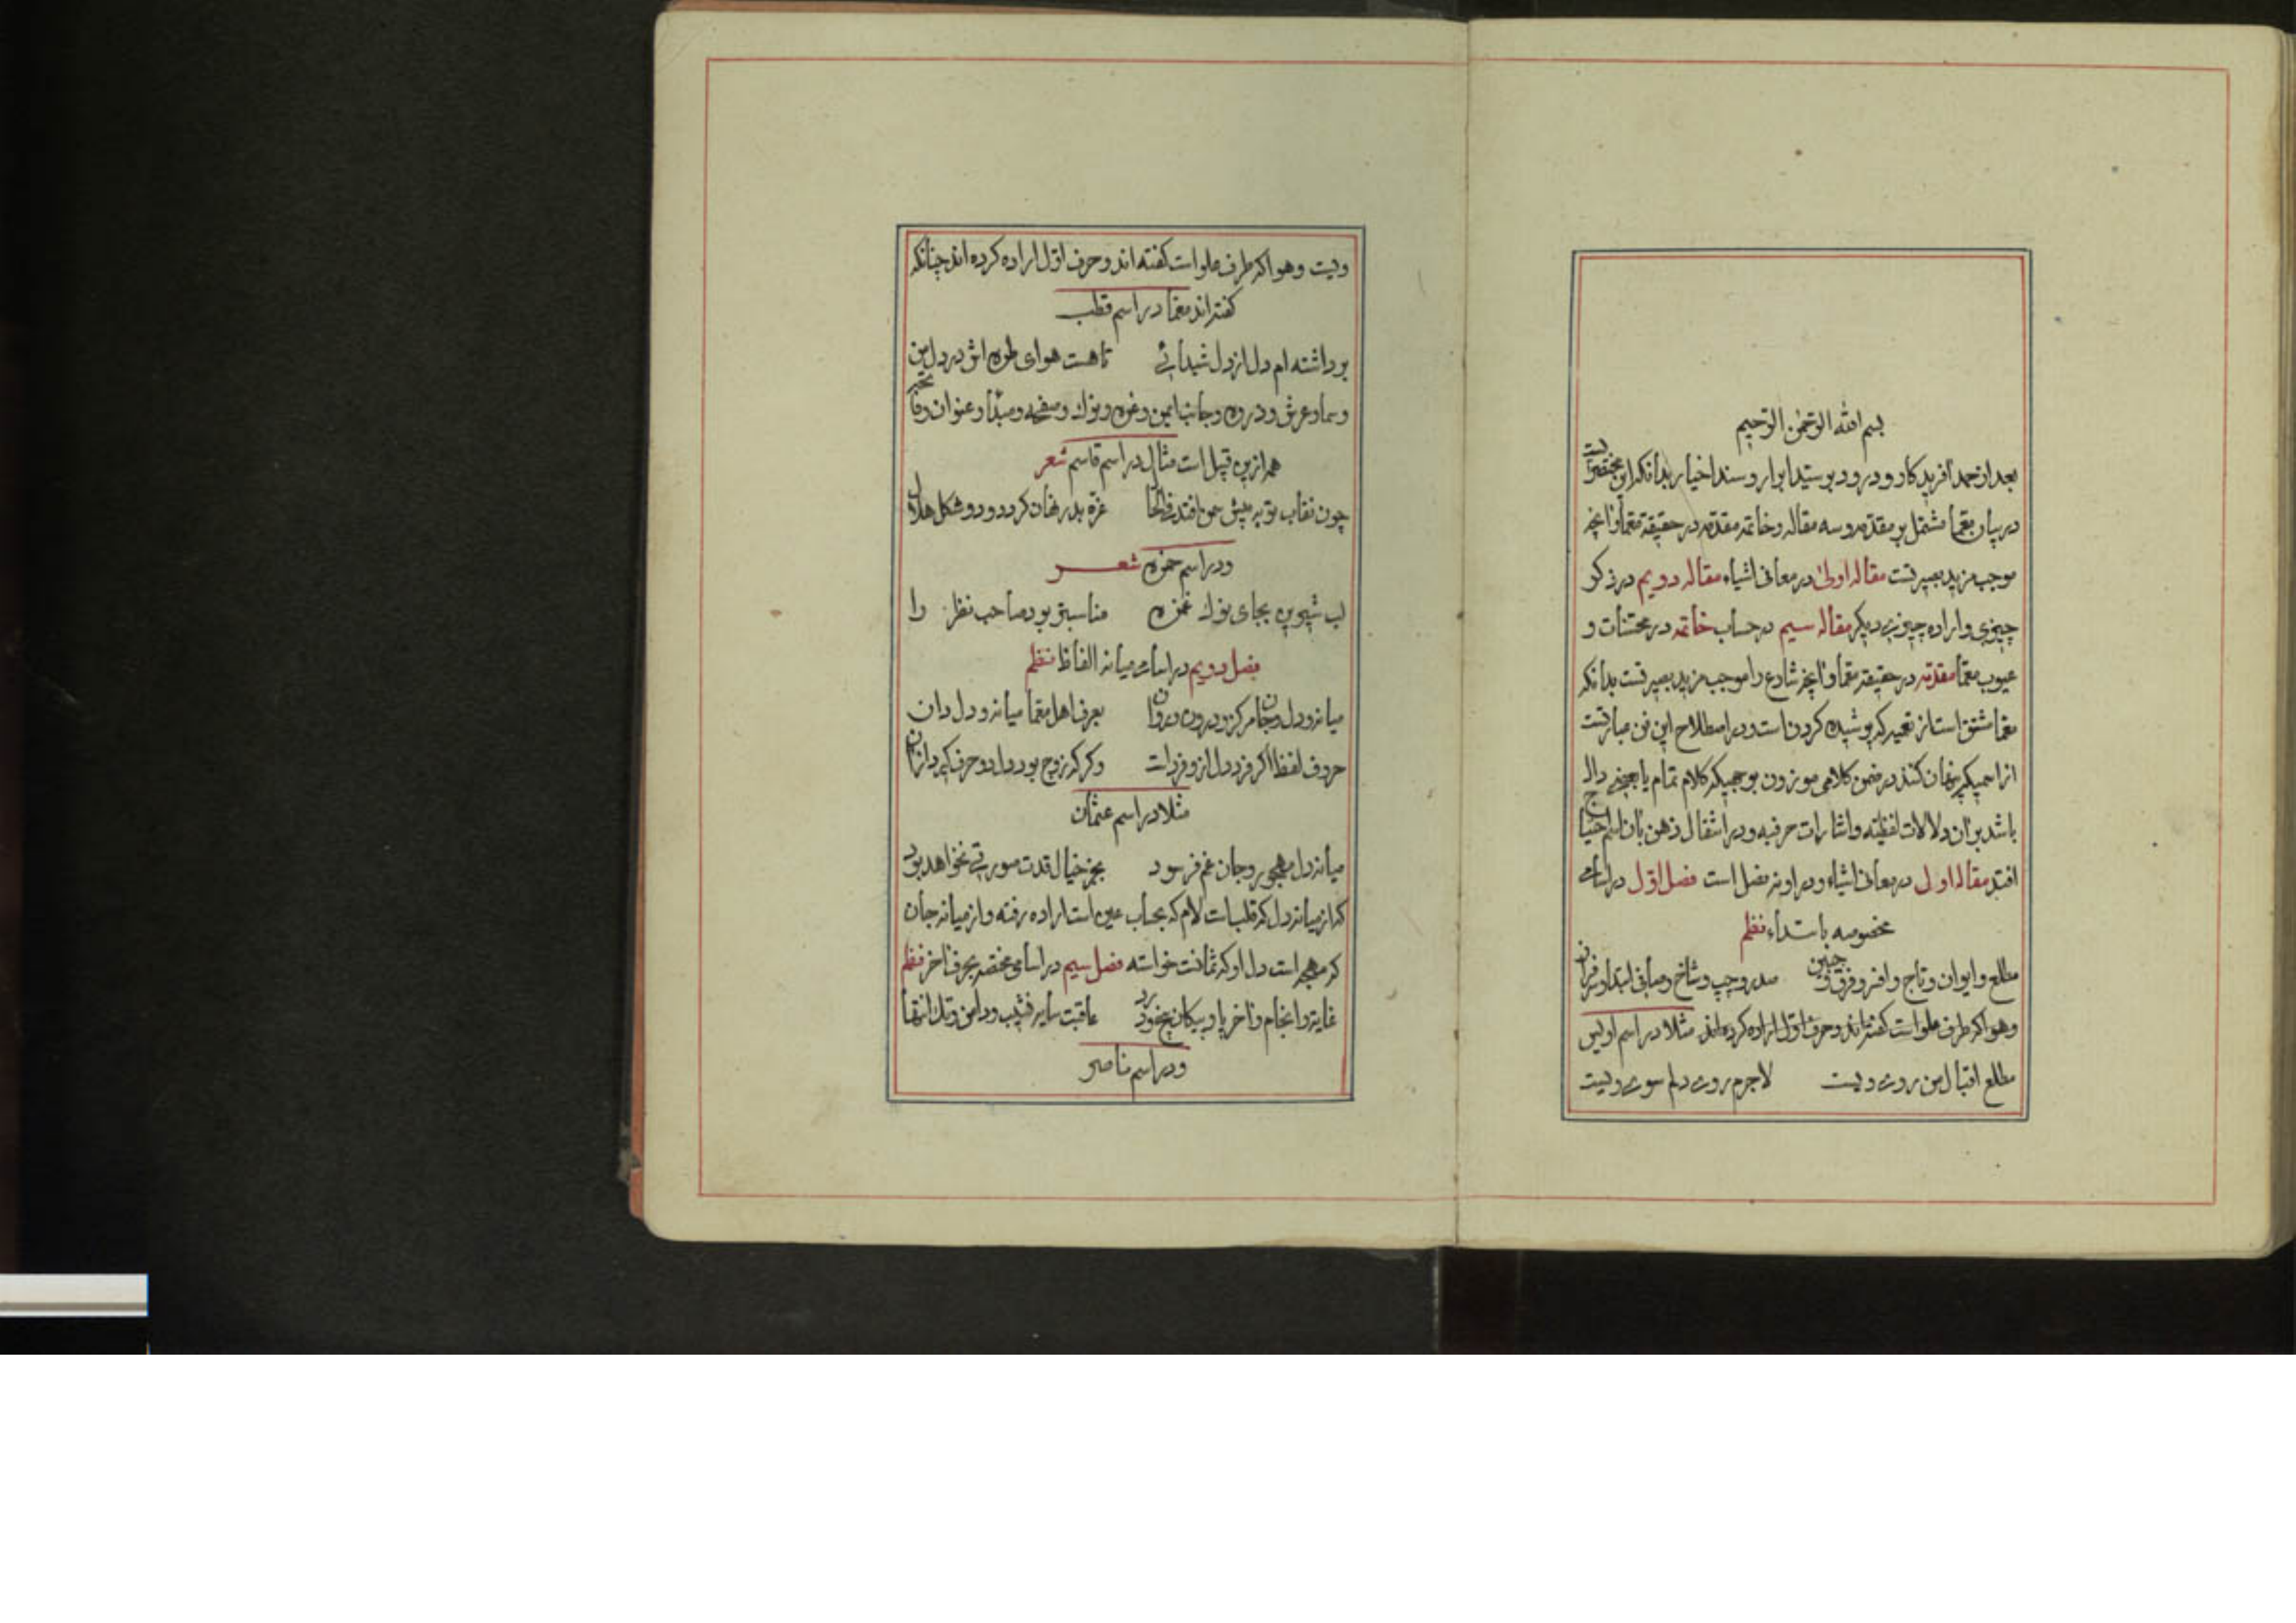 بسم الله الرحمن الرحیم
بعد از حمد افریدکار و درود بر سید ابرار و سند اخیار بدانکه این مختصریست
در بیان معما مشتمل بر مقدمه و سه مقاله و خاتمه مقدمه در حقیقة معما و انچه
موجب مزید بصیرتست مقاله اولی در معانی اشیاء مقاله دویم در ذکر
چیزی و اراده چیزی دیکر مقاله سیم در حساب خاتمه در محسنات و
عیوب معما مقدمه در حقیقة معما و انچه شارع را موجب مزید بصیرتست بدانکه
معما مشتق است از تعمیه که پوشیده کردنست و در اصطلاح این فن عبارتست
از اسمیکه پنهان کنند در ضمن کلامی موزون بوجهیکه کلام تمام یا بعضی دال
باشد بر ان دلالات لفظیه و اشارات حرفیه و در انتقال ذهن بان اسم احتیاج
افتد مقاله اول در معانی اشیاء و در او نه فصل است فصل اول در اسامی
مخصوصه بابتداء نظم
مطلع و ایوان و تاج و افسر و فرق و جبین صدر و جیب و شاخ و مبانی ابتدا و سر
وهوا که طرف علو است کفته اند و حرف اول اراده کرده اند مثلا در اسم اویس
مطلع اقبال من روی ویست لاجرم روی دلم سوی ویست
ویت وهوا که طرف علو است کفته اند و حرف اول اراده کرده اند چنانکه
کفته اند معما در اسم قطب
برداشته ام دل از دل شیدائی تا هست هوای طره اش در دل من
وسما و عرش و ذروه و جانب ایمن و غره و نوک و صفحه و مبدأ و عنوان و فاتحه
هم از ین قبیل است مثال در اسم قاسم شعر
چون نقاب تو به پیش من افتد فی الحال غرة بدر نهان کردد و دو شکل هلال
ودر اسم حمزه شعر
لب شیرین بجای نوک غمزه مناسبتر بود صاحب نظر را
فصل دویم در اسامی میانه الفاظ نظم
میانه و دل و جان مرکز و درون و روان بعرف اهل معما میانه و دل دان
حروف لفظ اکر فرد دل از و فرد است وکر که زوج بود دل دو حرف کیر از ان
مثلا در اسم عثمان
میانه دل مهجور و جان غم فرسود بجز خیال قدت صورتی نخواهد بود
که از میانه دل که قلبست لام که بحساب عین است اراده رفته و از میانه جان
که مهجر است دل او که ثمانست خواسته فصل سیم در اسامی مختصه بحرف اخر نظم
غایة و انجام و اخر پا و پیکان خود عاقبت سایه نشیب و دامن و تک انتها
ودر اسم ناصر